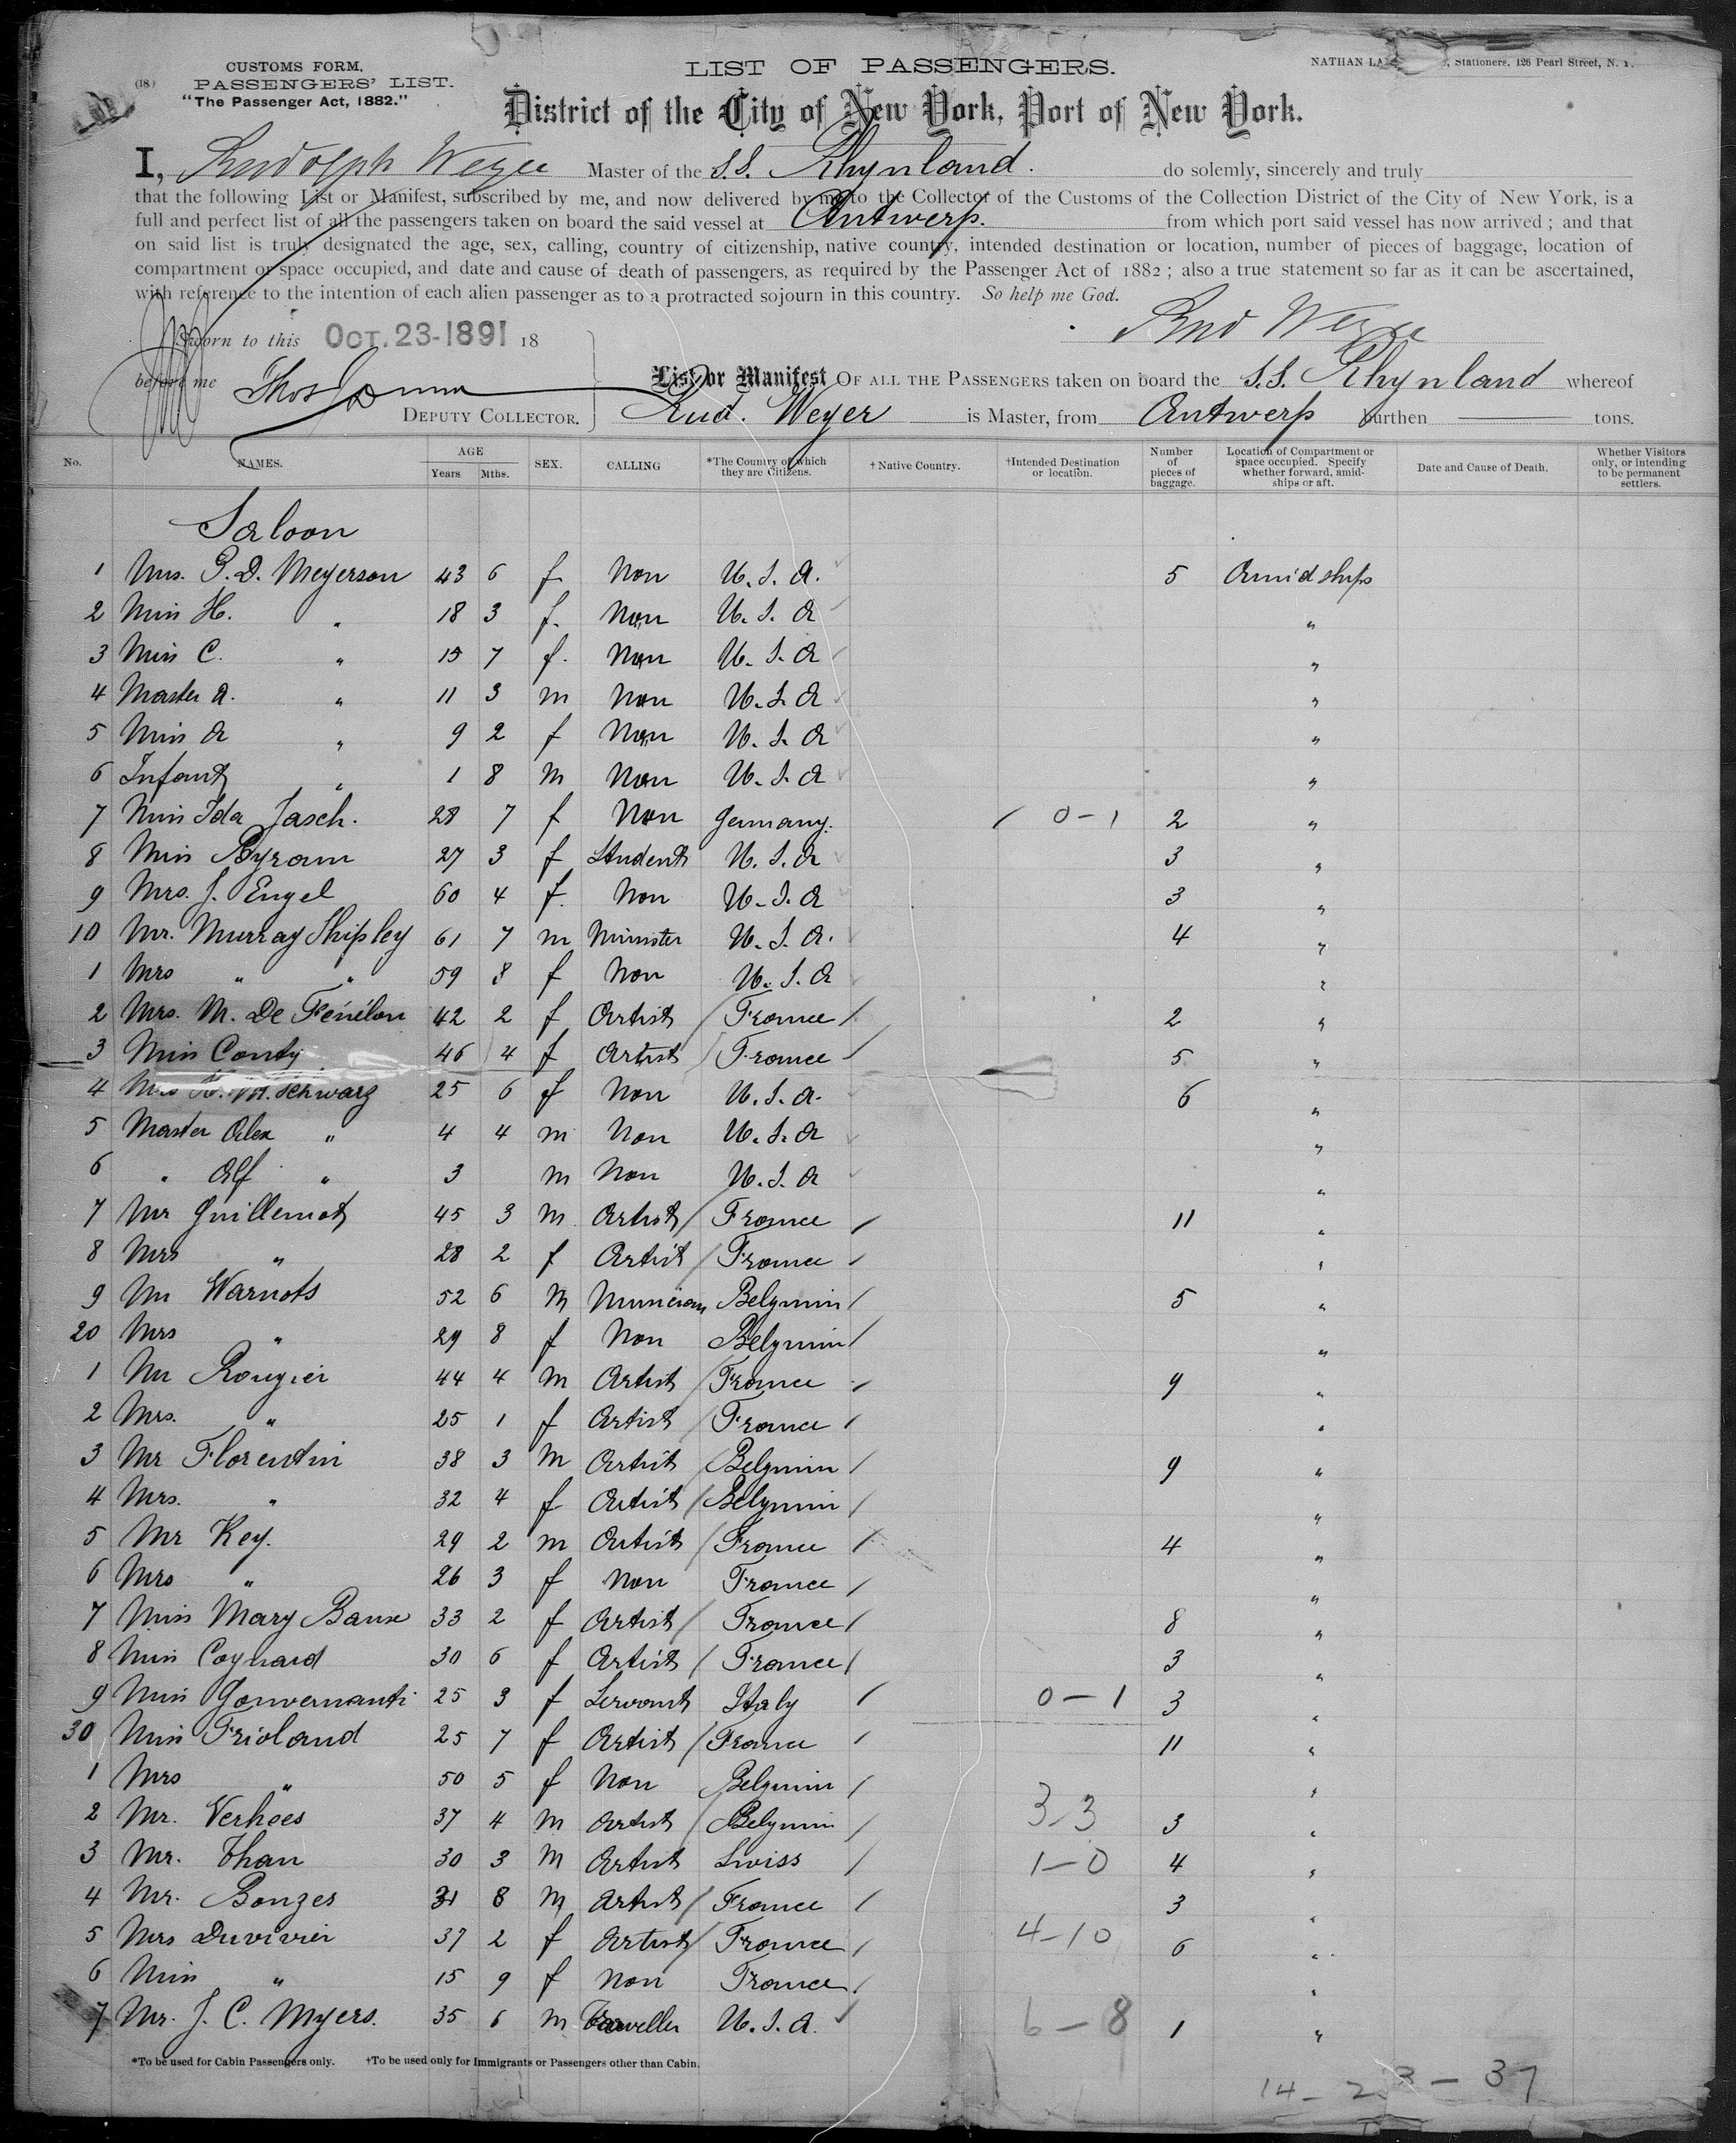 (18)
CUSTOMS FORM.
PASSENGERS' LIST.
"The Passenger Act, 1882."
LIST OF PASSENGERS.
NATHAN Stationers, 126 Pearl Street, N. Y.
District of the City of New York, Port of New York.
I, Rudolph Weyer Master of the S.S. Rhynland. do solemly, sincerely and truly
that the following List or Manifest, subscribed by me, and now delivered by me to the Collector of the Customs of the Collection District of the City of New York, is a
full and perfect list of all the passengers taken on board the said vessel at Antwerp. from which port said vessel has now arrived; and that
on said list is truly designated the age, sex, calling, country of citizenship, native country, intended destination or location, number of pieces of baggage, location of
compartment or space occupied, and date and cause of death of passengers, as required by the Passenger Act of 1882; also a true statement so far as it can be ascertained,
with reference to the intention of each alien passenger as to a protracted sojourn in this country. So help me God.
Sworn to this OCT. 23-1891 18
Rud Weyer
before me Thos
DEPUTY COLLECTOR.
List or Manifest OF ALL THE PASSENGERS taken on board the S.S. Rhynland whereof
Rud. Weyer is Master, from Antwerp burthen tons.
No. NAMES. AGE Years Mths. SEX. CALLING *The Country of which they are Citizens. †Native Country. †Intended Destination or location. Number of pieces of baggage. Location of Compartment or space occupied. Specify whether forward, amidships or aft. Date and Cause of Death. Whether Visitors only, or intending to be permanent settlers.
Saloon
1 Mrs. G. D. Meyerson 43 6 f. Non U.S.A. 5 Amidships
2 Miss H. " 18 3 f. Non U.S.A "
3 Miss C. " 15 7 f. Non U.S.A "
4 Master A. " 11 3 m Non U.S.A "
5 Miss A " 9 2 f Non U.S.A "
6 Infant " 1 8 m Non U.S.A "
7 Miss Ida Jasch. 28 7 f Non Germany. 0-1 2 "
8 Miss Byram 27 3 f Student U.S.A 3 "
9 Mrs. J. Engel 60 4 f. Non U.S.A 3 "
10 Mr. Murray Shipley 61 7 m Minister U.S.A. 4 "
1 Mrs " " 59 8 f Non U.S.A "
2 Mrs. M. De Fénélon 42 2 f Artist France 2 "
3 Miss Conty 46 4 f Artist France 5 "
4 Mrs M. Schwarz 25 6 f Non U.S.A. 6 "
5 Master Alex " 4 4 m Non U.S.A "
6 " Alf " 3 m Non U.S.A "
7 Mr Guillemot 45 3 m Artist France 11 "
8 Mrs " 28 2 f Artist France "
9 Mr Warnots 52 6 m Musician Belgium 5 "
20 Mrs " 29 8 f Non Belgium "
1 Mr Rougier 44 4 m Artist France 9 "
2 Mrs. " 25 1 f Artist France "
3 Mr Florentin 38 3 m Artist Belgium 9 "
4 Mrs. " 32 4 f Artist Belgium "
5 Mr Key. 29 2 m Artist France 4 "
6 Mrs " 26 3 f Non France "
7 Miss Mary Banse 33 2 f Artist France 8 "
8 Miss Coynard 30 6 f Artist France 3 "
9 Miss Gouvernanti 25 3 f Servant Italy 0-1 3 "
30 Miss Frioland 25 7 f Artist France 11 "
1 Mrs " 50 5 f Non Belgium "
2 Mr. Verhees 37 4 m Artist Belgium 3-3 3 "
3 Mr. Than 30 3 m Artist Swiss 1-0 4 "
4 Mr. Bonzes 31 8 m Artist France 3 "
5 Mrs Duvivier 37 2 f Artist France 4-10 6 "
6 Miss " 15 9 f Non France "
7 Mr. J. C. Myers. 35 6 m Traveller U.S.A. 6-8 1 "
*To be used for Cabin Passengers only. †To be used only for Immigrants or Passengers other than Cabin.
14-23-37